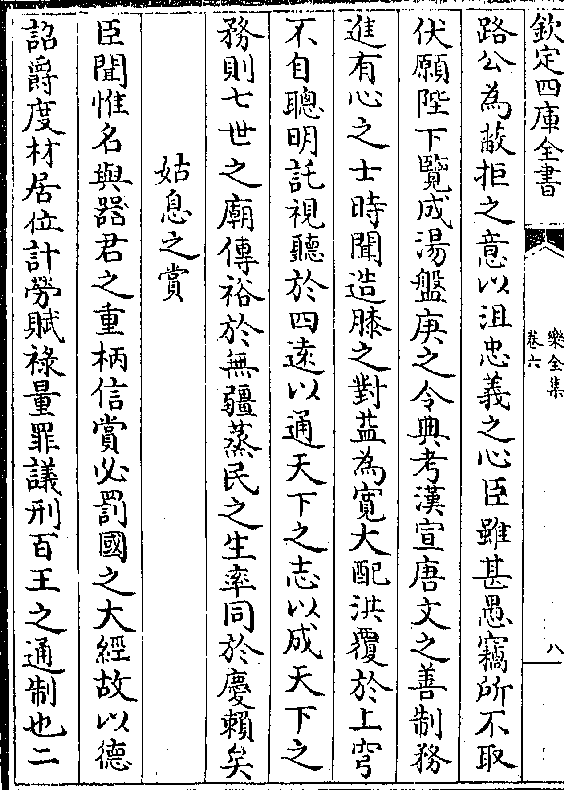 欽定四庫全書
樂全集
卷六
八
路公為蔽拒之意以沮忠義之心臣雖甚愚竊所不取
伏願陛下覽成湯盤庚之令典考漢宣唐文之善制務
進有心之士時聞造膝之對益為寛大配洪覆於上穹
不自聰明託視聽於四遠以通天下之志以成天下之
務則七世之廟傳裕於無疆蒸民之生率同於慶賴矣
姑息之賞
臣聞惟名與器君之重柄信賞必罰國之大經故以德
詔爵度材居位計勞賦祿量罪議刑百王之通制也二